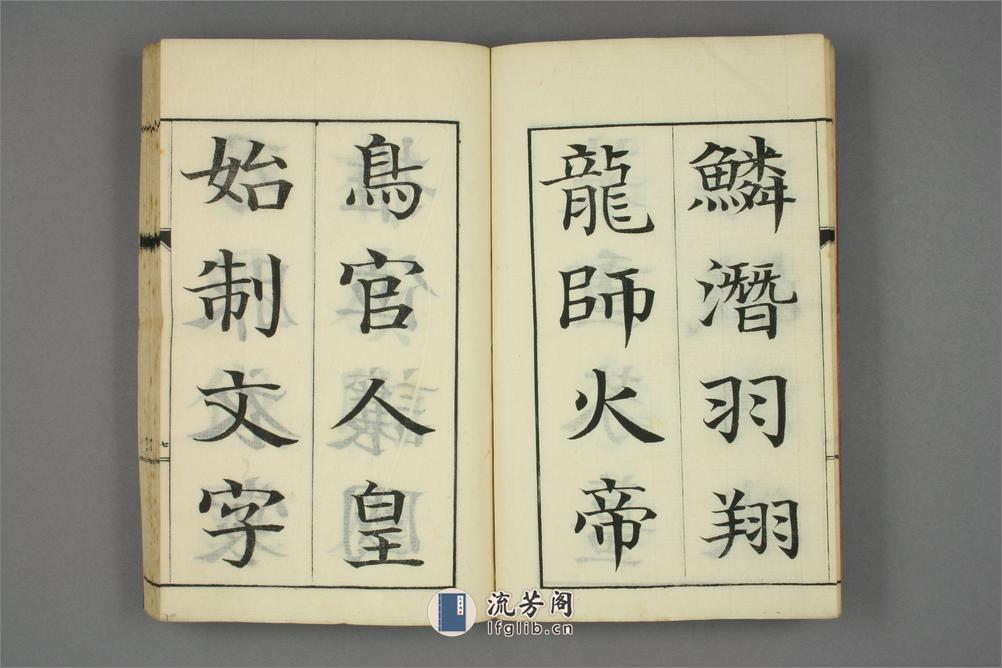 鱗潛羽翔
龍師火帝
鳥官人皇
始制文字
七
流芳阁
lfglib.cn